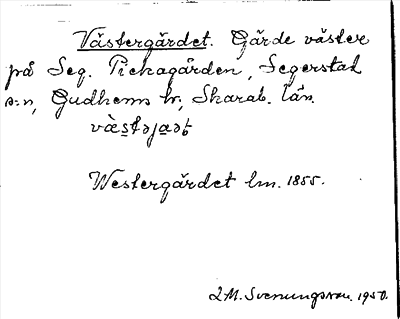 Västergärdet. Gärde väster
på Seg. Pickagården, Segerstad
s:n, Gudhems hr, Skarab. län.
Westergärdet lm. 1855.
L M. Svenungsson. 1950.